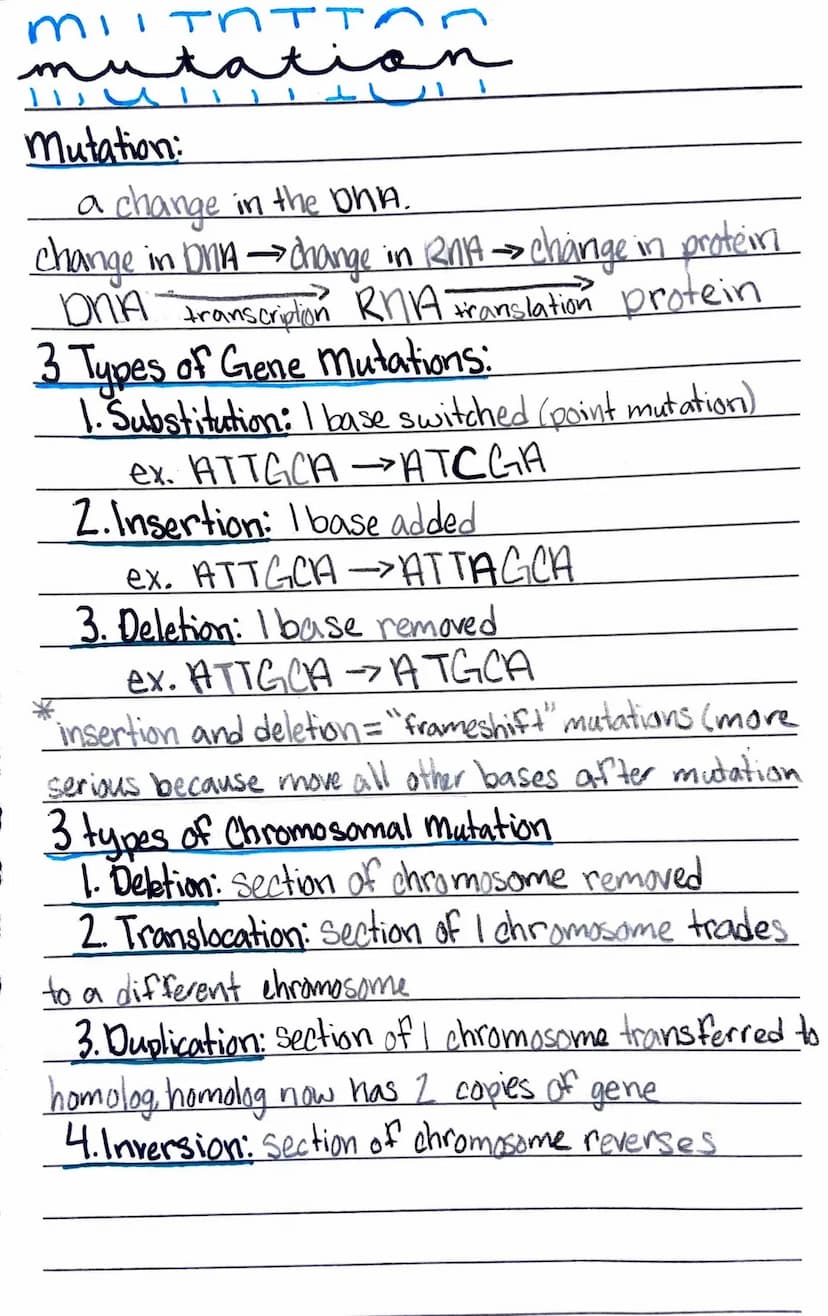 mutation
Mutation:
a change in the DNA.
change in DNA → change in RNA → change in protein
DNA transcription→ RNA translation→ protein
3 Types of Gene Mutations:
1. Substitution: 1 base switched (point mutation)
ex. ATTGCA → ATCGA
2. Insertion: 1 base added
ex. ATTGCA → ATTAGCA
3. Deletion: 1 base removed
ex. ATTGCA → ATGCA
* insertion and deletion = "frameshift" mutations (more
serious because move all other bases after mutation
3 types of Chromosomal Mutation
1. Deletion: section of chromosome removed
2. Translocation: section of 1 chromosome trades
to a different chromosome
3. Duplication: section of 1 chromosome transferred to
homolog, homolog now has 2 copies of gene
4. Inversion: section of chromosome reverses